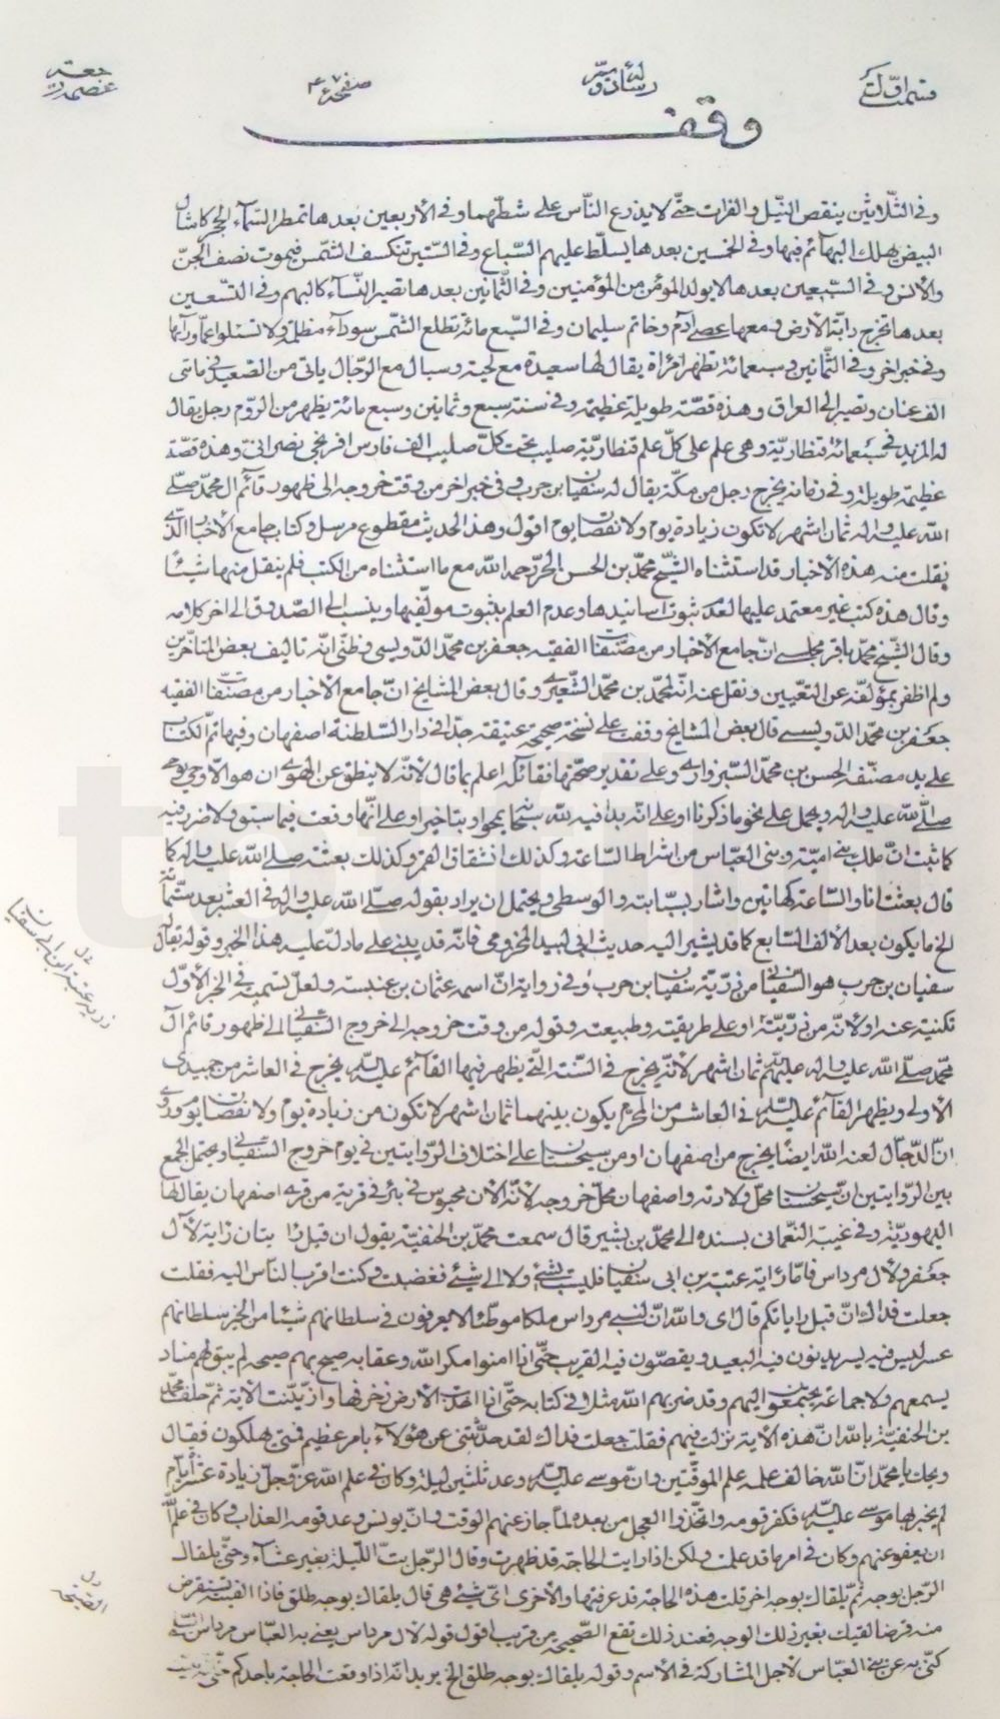 قسمت اول
رساله
صفحه ۴۰۷
وقف
وفي الثلاثين ينقص النيل والفرات حتى لا يذرع الناس على شطهما وفي الأربعين بعدها تمطر السمآء الحجر كامثال
البيض يهلك البهائم فيها وفي الخمسين بعدها يسلط عليهم السباع وفي الستين تنكسف الشمس فيموت نصف الجن
والأنس وفي السبعين بعدها لا يولد المؤمن من المؤمنين وفي الثمانين بعدها تصير النسآء كالبهم وفي التسعين
بعدها تخرج دابة الأرض ومعها عصى آدم وخاتم سليمان وفي السبع مائة تطلع الشمس سودآء مظلمة ولا تسئلوا عما ورآءها
وفي خبر اخر وفي الثمانين وسبعمائة تظهر امرأة يقال لها سعيدة مع لحية وسبال مع الرجال ياتي من الصعيد في ماتى
الف عنان وتصير الى العراق وهذه قصة طويلة عظيمة وفي سنة سبع وثمانين وسبع مائة يظهر من الروم رجل يقال
له المزيد في خمسمائة قنطارية وهي علم على كل علم قنطارية صليب تحت كل صليب الف فارس افرنجي نصراني وهذه قصة
عظيمة طويلة وفي زمانه يخرج رجل من مكة يقال له سفيان بن حرب وفي خبر اخر من وقت خروجه الى ظهور قائم ال محمد صلى
الله عليه وآله ثمان اشهر لا تكون زيادة يوم ولا نقصان يوم اقول وهذا الحديث مقطوع مرسل وكتاب جامع الأخبار الذي
نقلت منه هذه الأخبار قد استثناه الشيخ محمد بن الحسن الحر رحمه الله مع ما استثناه من الكتب فلم ينقل منها شيئا
وقال هذه كتب غير معتمد عليها لعدم ثبوت اسانيدها وعدم العلم بثبوت مولفيها وينسب الى الصدوق الى اخر كلامه
وقال الشيخ محمد باقر مجلسي ان جامع الأخبار من مصنفات الفقيه جعفر بن محمد الدوريستي وظني انه تاليف بعض المتأخرين
ولم اظفر بمؤلفه عن التعيين ونقل عنه انه لمحمد بن محمد الشعيري وقال بعض المشايخ ان جامع الأخبار من مصنفات الفقيه
جعفر بن محمد الدوريستي قال بعض المشايخ وقفت على نسخة صحيحة عتيقة جدا في دار السلطنة اصفهان وفيها تم الكتاب
على يد مصنفه الحسن بن محمد السبزواري وعلى تقدير صحتها فقائله اعلم بما قال لأنه لا ينطق عن الهوى ان هو الا وحي يوحى
صلى الله عليه وآله ويحمل على نحو ما ذكرنا او على انه بدا فيه لله سبحانه بمحو او بتاخير او على انها وقعت فيما سبق ولا ضرر فيه
كما ثبت ان ملك بني امية وبني العباس من اشراط الساعة وكذلك انشقاق القمر وكذلك بعثته صلى الله عليه وآله كما
قال بعثت انا والساعة كهاتين واشار بسبابته والوسطى ويحتمل ان يراد بقوله صلى الله عليه وآله في العشر بعد ستمائة
الخ ما يكون بعد الألف السابع كما قد يشير اليه حديث ابي لبيد المخزومي فانه قد يبنى على ما دل عليه هذا الخبر وقوله يقال
سفيان بن حرب هو السفياني من ذرية سفيان بن حرب وفي رواية ان اسمه عثمان بن عنبسة ولعل تسميته في الخبر الأول
تكنية عنه او لأنه من ذريته او على طريقته وطبيعته وقوله من وقت خروجه الى خروج السفياني الى ظهور قائم آل
محمد صلى الله عليه وآله عليهم ثمان اشهر لأنه يخرج في السنة التي يظهر فيها القائم عليه السلام يخرج في العاشر من جميدى
الأولى ويظهر القائم عليه السلام في العاشر من المحرم يكون بينهما ثمان اشهر لا تكون من زيادة يوم ولا نقصان يوم وروي
ان الدجال لعنه الله ايضا يخرج من اصفهان او من سيحستان على اختلاف الروايتين في يوم خروج السفياني ويحتمل الجمع
بين الروايتين ان سيحستان محل ولادته واصفهان محل خروجه لأنه الآن محبوس في بئر في قرية من قرى اصفهان يقال لها
اليهودية وفي غيبة النعماني بسنده الى محمد بن بشير قال سمعت محمد بن الحنفية يقول ان قبل رايتان راية لآل
جعفر ولآل مرداس فاما راية عتبة بن ابي سفيان فليست بشيء ولا الى شيء فغضبت وكنت اقرب الناس اليه فقلت
جعلت فداك ان قبل راياتكم قال اي والله ان لبني مرداس ملكا موطئا لا يعرفون في سلطانهم شيئا من الخير سلطانهم
عسر ليس فيه يسر يدنون فيه البعيد ويقصون فيه القريب حتى اذا امنوا مكر الله وعقابه صيح بهم صيحه لم يبق لهم مناد
يسمعهم ولا جماعة يجتمعون اليهم وقد ضربهم الله مثلا في كتابه حتى اذا اخذت الأرض زخرفها وازينت الآية ثم حلف محمد
بن الحنفية بالله ان هذه الآية نزلت فيهم فقلت جعلت فداك لقد حدثتني عن هؤلاء بامر عظيم فمتى يهلكون فقال
ويحك يا محمد ان الله خالف علمه علم الموقتين وان موسى عليه السلام وعد ثلثين ليلة وكان في علم الله عز وجل زيادة عشر أيام
لم يخبر بها موسى عليه السلام فكفر قومه واتخذوا العجل من بعده لما جاز عنهم الوقت وان يونس وعد قومه العذاب وكان في علم الله
ان يعفو عنهم وكان في امرها قد علمت ولكن اذا رايت الحاجة قد ظهرت وقال الرجل بت الليلة بغير عشآء وحتى يلقاك
الرجل بوجه ثم يلقاك بوجه اخر قلت هذه الحاجة قد عرفتها والأخرى اي شيء هي قال يلقاك بوجه طلق فاذا الفيته تستقرض
منه قرضا لقيك بغير ذلك الوجه فعند ذلك تقع الصيحة من قريب اقول قوله لآل مرداس يعني به العباس مرداس
كنى به عن بني العباس لاجل المشاركة في الأسم وقوله يلقاك بوجه طلق الخ يريد انه اذا وقعت الحاجة باحدكم
عتبة ابن ابي سفيان
الصيحة